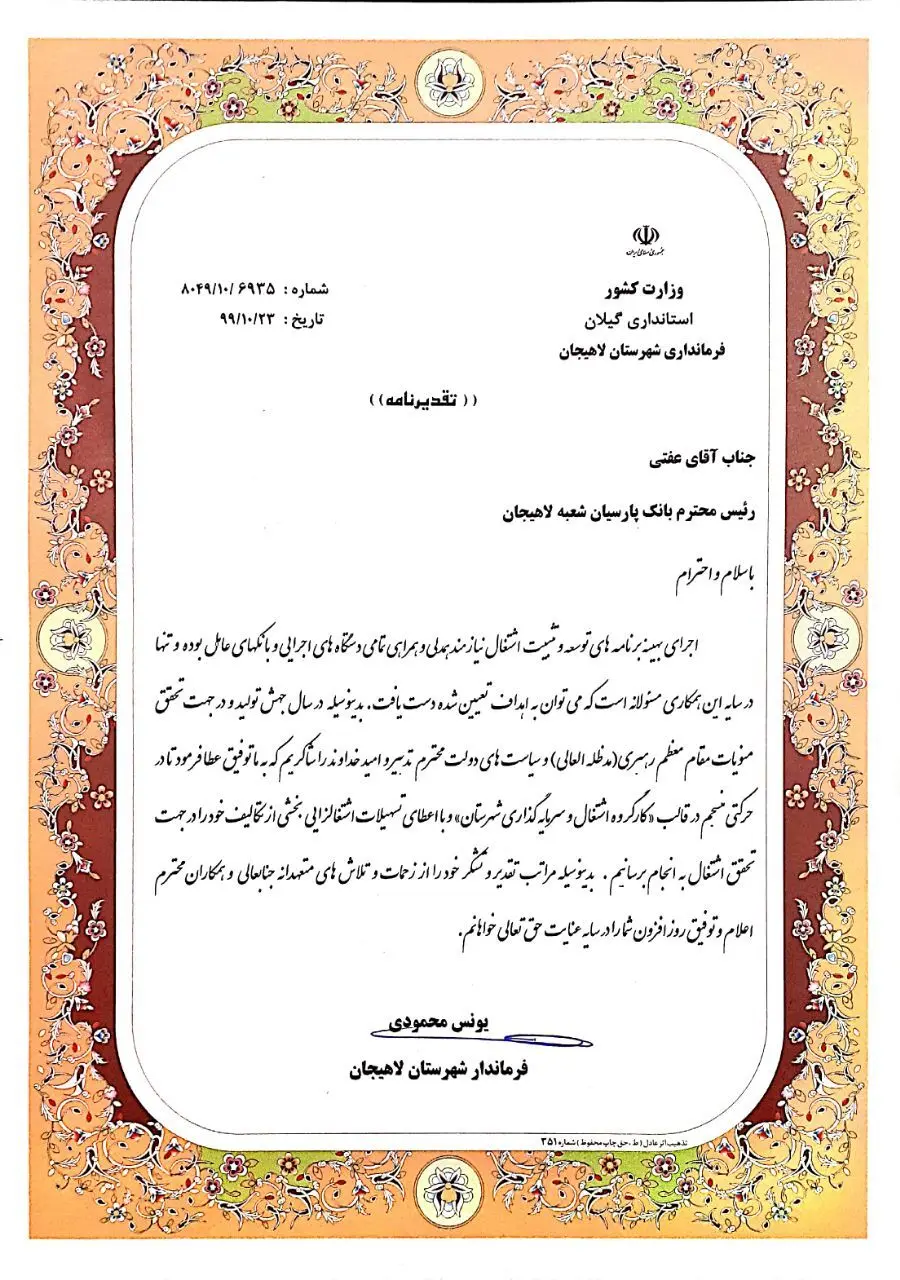 جمهوری اسلامی ایران
وزارت کشور
استانداری گیلان
فرمانداری شهرستان لاهیجان
شماره : ۸۰۴۹/۱۰/ ۶۹۳۵
تاریخ : ۹۹/۱۰/۲۳
(( تقدیرنامه))
جناب آقای عفتی
رئیس محترم بانک پارسیان شعبه لاهیجان
باسلام و احترام
اجرای بهینه برنامه های توسعه و تثبیت اشتغال نیازمند همدلی و همراهی تمامی دستگاه های اجرایی و بانکهای عامل بوده و تنها
در سایه این همکاری مسئولانه است که می توان به اهداف تعیین شده دست یافت. بدینوسیله در سال جهش تولید و در جهت تحقق
منویات مقام معظم رهبری(مدظله العالی) و سیاست های دولت محترم تدبیر و امید خداوند را شاکریم که به ما توفیق عطا فرمود تا در
حرکتی منسجم در قالب «کارگروه اشتغال و سرمایه گذاری شهرستان» و با اعطای تسهیلات اشتغالزایی بخشی از تکالیف خود را در جهت
تحقق اشتغال به انجام برسانیم . بدینوسیله مراتب تقدیر و تشکر خود را از زحمات و تلاش های متعهدانه جنابعالی و همکاران محترم
اعلام و توفیق روز افزون شما را در سایه عنایت حق تعالی خواهانم.
یونس محمودی
فرماندار شهرستان لاهیجان
تذهیب اثر عادل (ط ، حق چاپ محفوظ ) شماره ۳۵۱